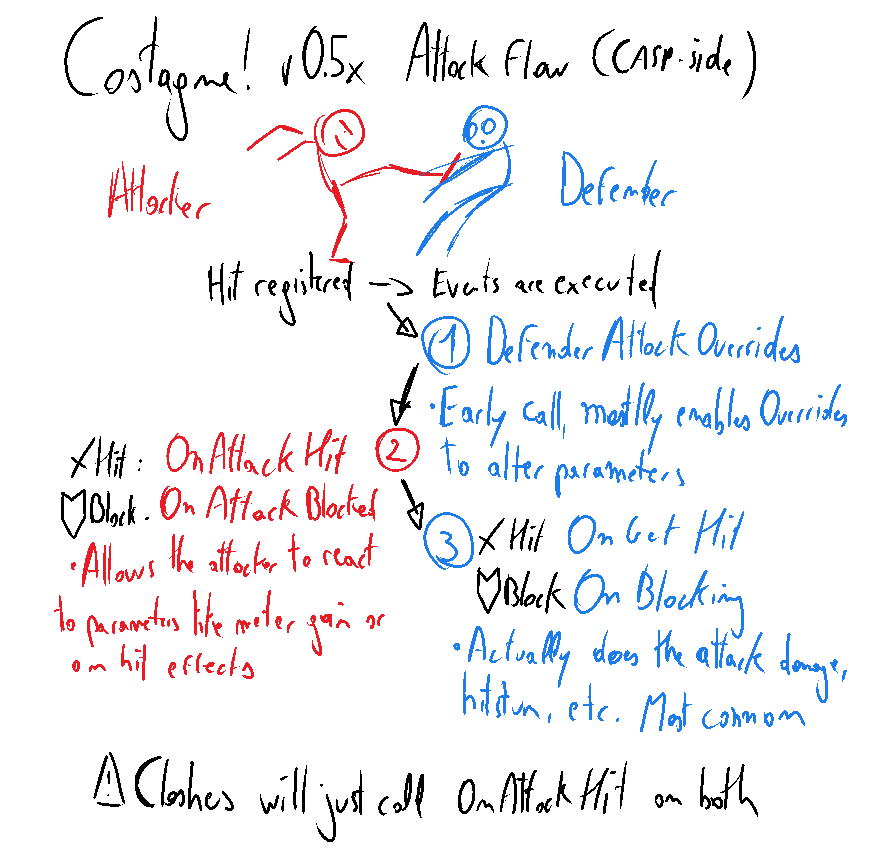 Castagne! v0.5x Attack Flow (CASP-side)
Attacker
Defender
Hit registered → Events are executed
1 Defender Attack Overrides
• Early call, mostly enables Overrides
to alter parameters
2
Hit: OnAttackHit
Block. On Attack Blocked
• Allows the attacker to react
to parameters like meter gain or
on hit effects
3 Hit On Get Hit
Block On Blocking
• Actually does the attack damage,
hitstun, etc. Most common
⚠ Clashes will just call OnAttackHit on both